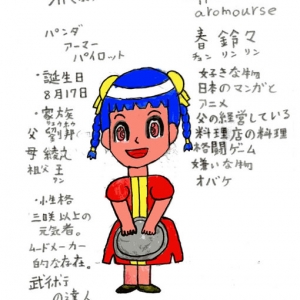 パンダ
アーマー
パイロット
・誕生日
8月17日
・家族
父 劉邦
リュウホウ
母 綾之
祖父 王
ワン
・性格
三咲以上の
元気者。
ムードメーカー
的な存在。
武術
の達人
aromourse
春 鈴々
チュン リン リン
好きな物
日本のマンガと
アニメ
父の経営している
料理店の料理
格闘ゲーム
嫌いな物
オバケ